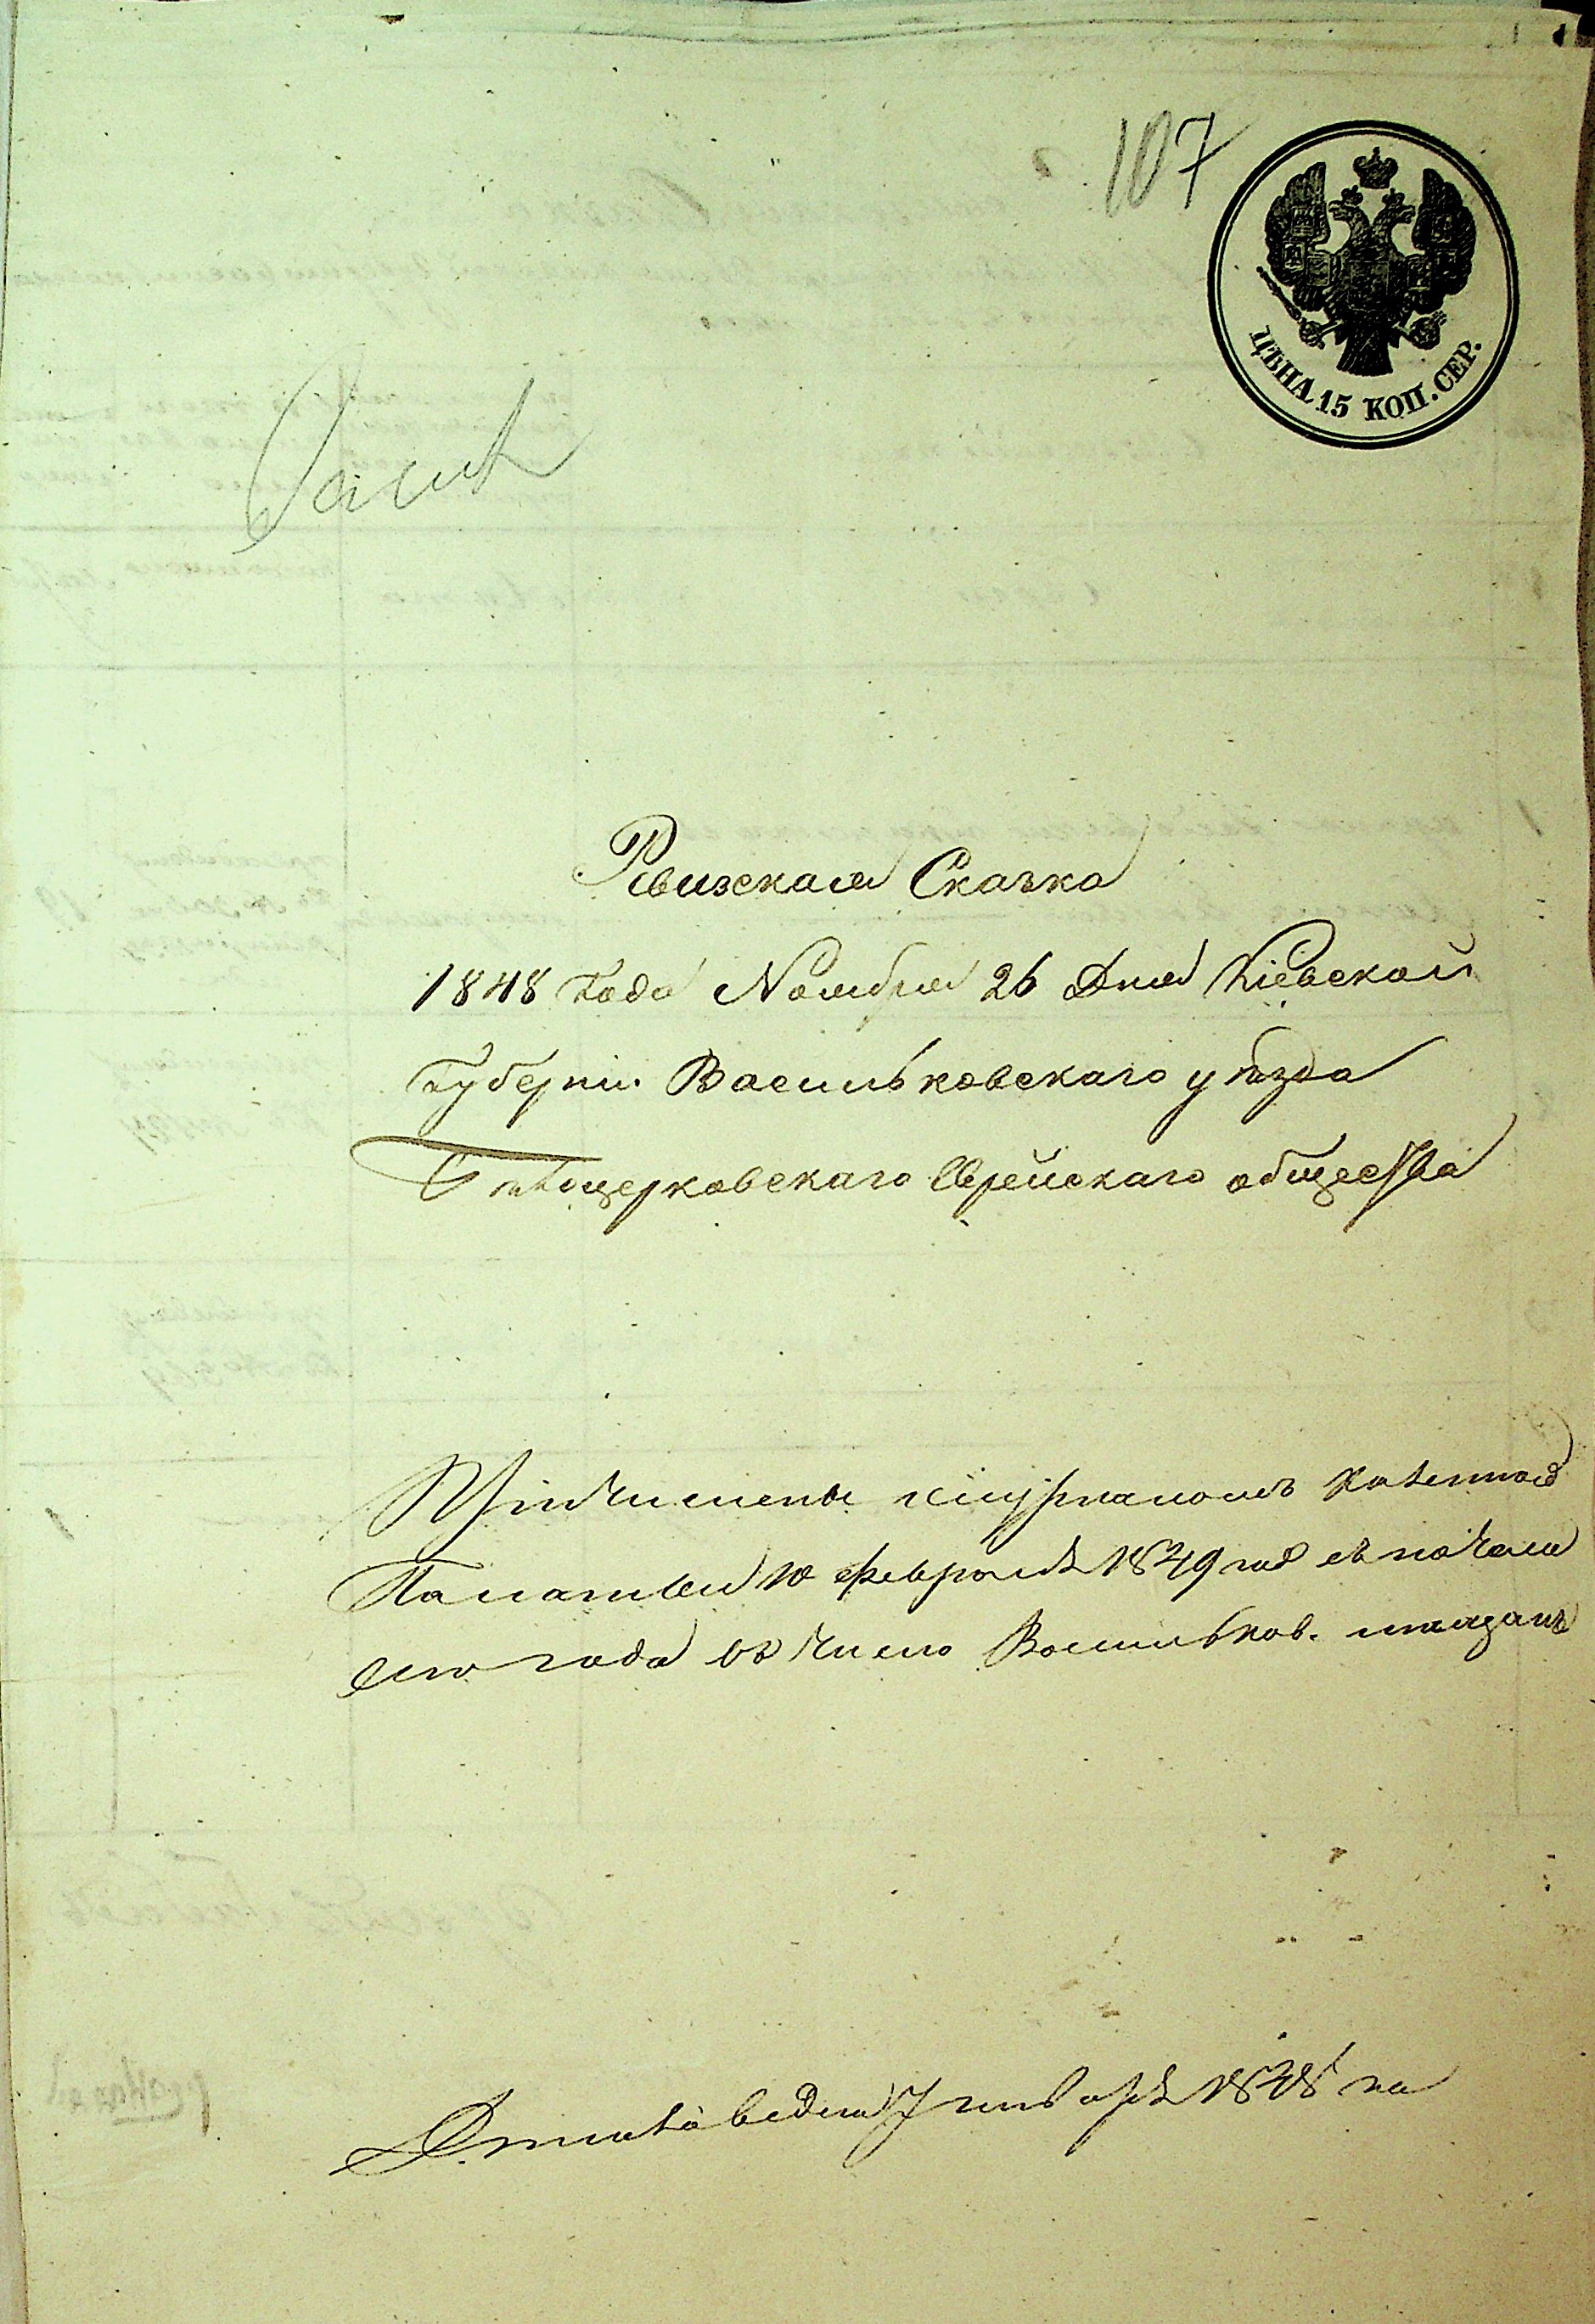 107
ЦѢНА 15 КОП. СЕР.
Ревизская Сказка
1848 года Ноября 26 Дня Кіевской
Губерніи Васильковскаго уѣзда
Бѣлоцерковскаго Еврейскаго общества
Причислены журналомъ Казенной
Палаты 10 февраля 1849 год съ начала
сего года въ число Васильков. мѣщанъ
1848 на